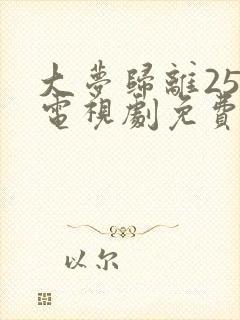 大夢歸離25
電視劇免費
以尔